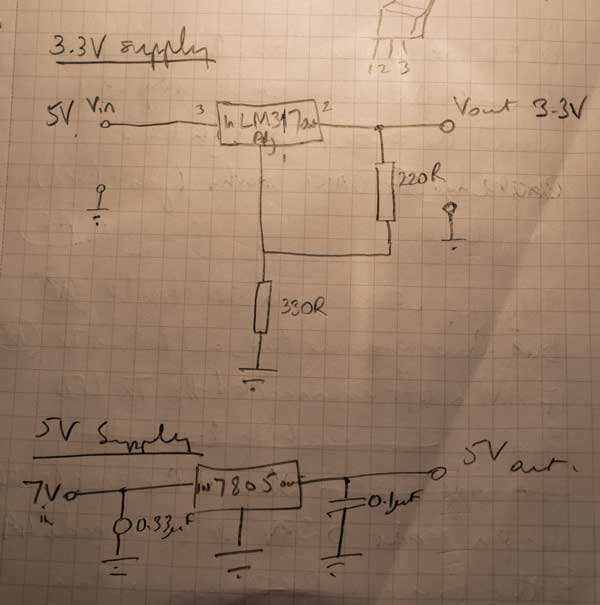 3.3V supply
1 2 3
5V Vin 3 In LM317 out 2 Vout 3.3V
Adj 1
220R
330R
5V Supply
7V in IN 7805 out 5V out.
0.33µF 0.1µF